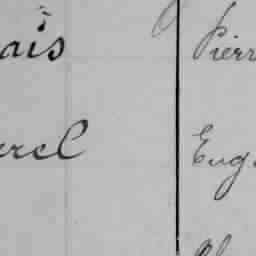 ais Pierr
urel Eug